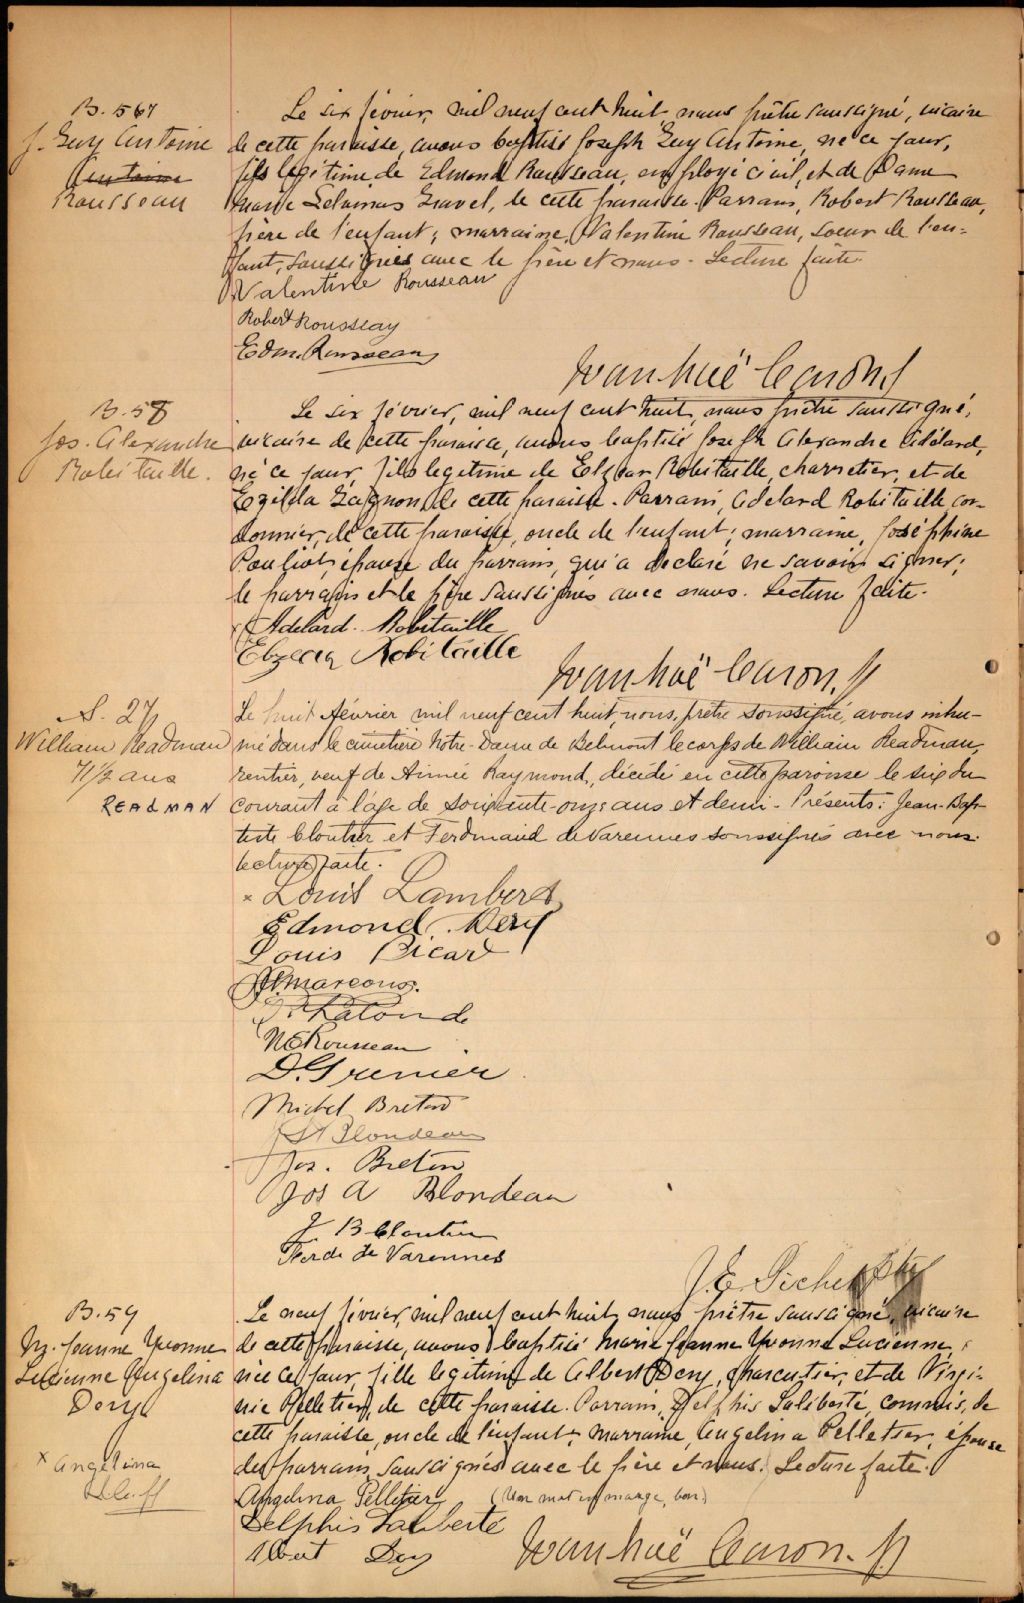 B. 567
J. Guy Antoine
Antoine
Rousseau
Le six février, mil neuf cent huit, nous prêtre soussigné, vicaire
de cette paroisse, avons baptisé Joseph Guy Antoine, né ce jour,
fils légitime de Edmond Rousseau, employé civil, et de Dame
Marie Gravel, de cette paroisse. Parrain, Robert Rousseau,
frère de l'enfant; marraine, Valentine Rousseau, soeur de l'en-
fant, soussignés avec le père et nous. Lecture faite.
Valentine Rousseau
Robert Rousseau
Edm. Rousseau
Ivanhoë Caron, p
B. 58
Jos. Alexandre
Robitaille.
Le six février, mil neuf cent huit, nous prêtre soussigné,
vicaire de cette paroisse, avons baptisé Joseph Alexandre Adélard,
né ce jour, fils legitime de Elzear Robitaille, charretier, et de
Exzilda Gagnon, de cette paroisse. Parrain, Adelard Robitaille, cor-
donnier, de cette paroisse, oncle de l'enfant; marraine, Joséphine
Pouliot, épouse du parrain, qui a déclaré ne savoir signer;
le parrain et le père soussignés avec nous. Lecture faite.
x Adelard. Robitaille
Elzear Robitaille
Ivanhoë Caron, p
S. 27
William Readman
71½ ans
READMAN
Le huit février mil neuf cent huit, nous, prêtre soussigné, avons inhu-
mé dans le cimetière Notre-Dame de Belmont le corps de William Readman,
rentier, veuf de Aimée Raymond, décédé en cette paroisse le six du
courant à l'âge de soixante-onze ans et demi. Présents: Jean-Bap-
tiste Cloutier et Ferdinand de Varennes soussignés avec nous.
Lecture faite.
x Louis Lambert
Edmond. Dery
Louis Picard
Marcoux.
Lalonde
N E Rousseau
D. Grenier
Michel Breton
Blondeau
Jos. Breton
Jos A Blondeau
J B Cloutier
Ferd. de Varennes
J. E. Pichet Ptre
B. 59
M. Jeanne Yvonne
Lucienne Angelina
Dery
x Angélina
Le neuf février, mil neuf cent huit, nous prêtre soussigné, vicaire
de cette paroisse, avons baptisé Marie Jeanne Yvonne Lucienne, x
née ce jour, fille legitime de Albert Dery, charcutier, et de Virgi-
nie Pelletier, de cette paroisse. Parrain, Delphis Laliberté, commis, de
cette paroisse, oncle de l'enfant; marraine, Angelina Pelletier, épouse
du parrain, soussignés avec le père et nous. Lecture faite.
Angelina Pelletier (Un mot en marge, bon)
Delphis Laliberté
Albert Dery
Ivanhoë Caron. p